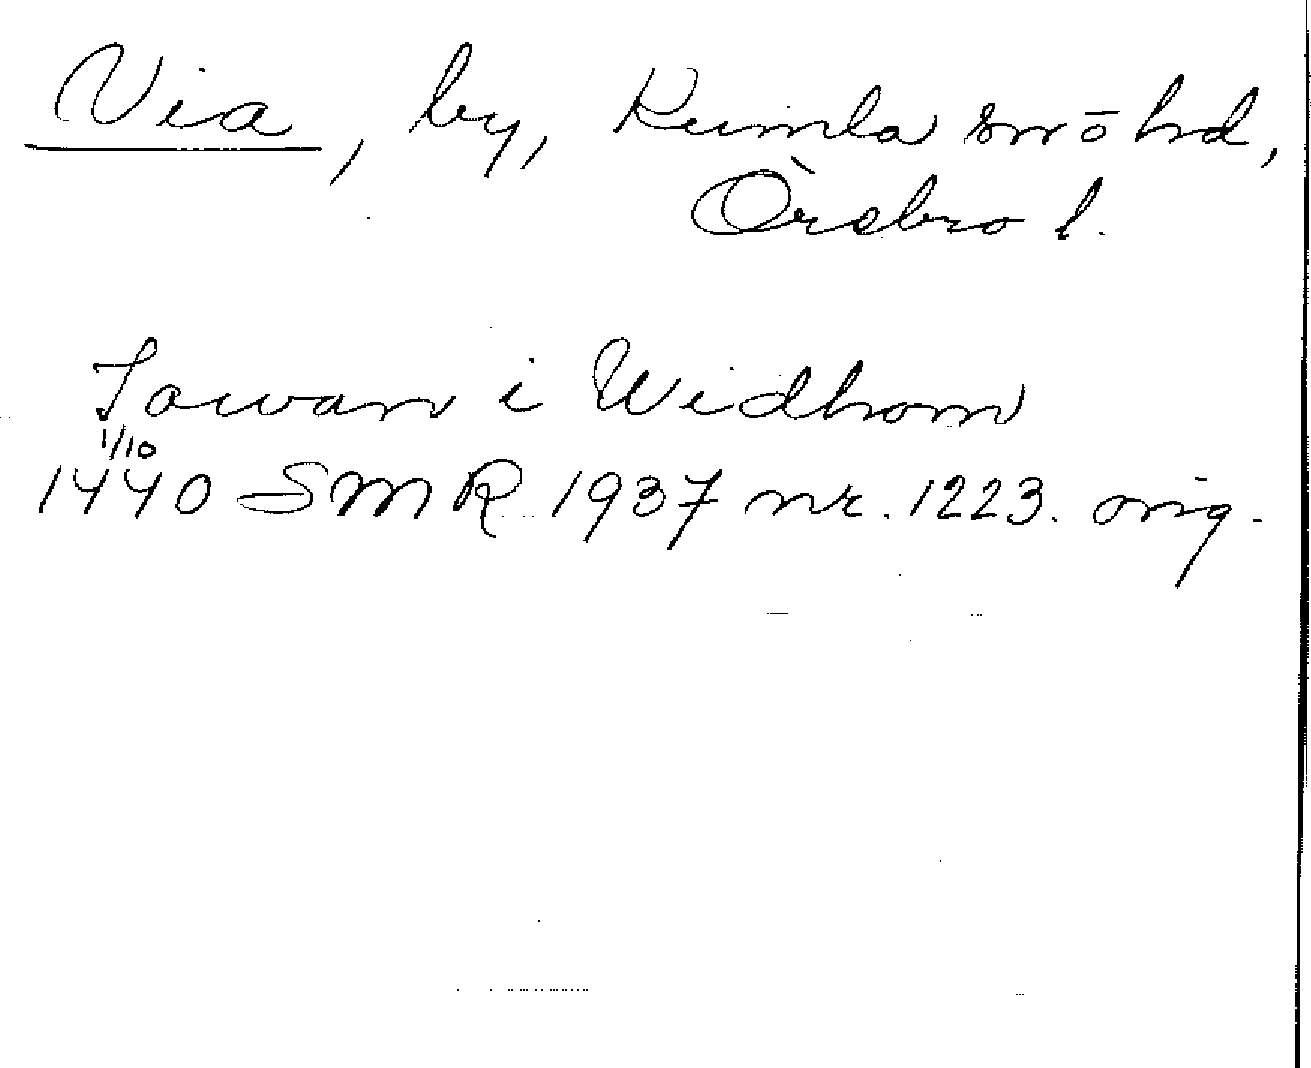 Via, by, Kumla sn o hd,
Örebro l.
Lawan i Widhom
1/10
1440 SMR 1937 nr. 1223. orig.